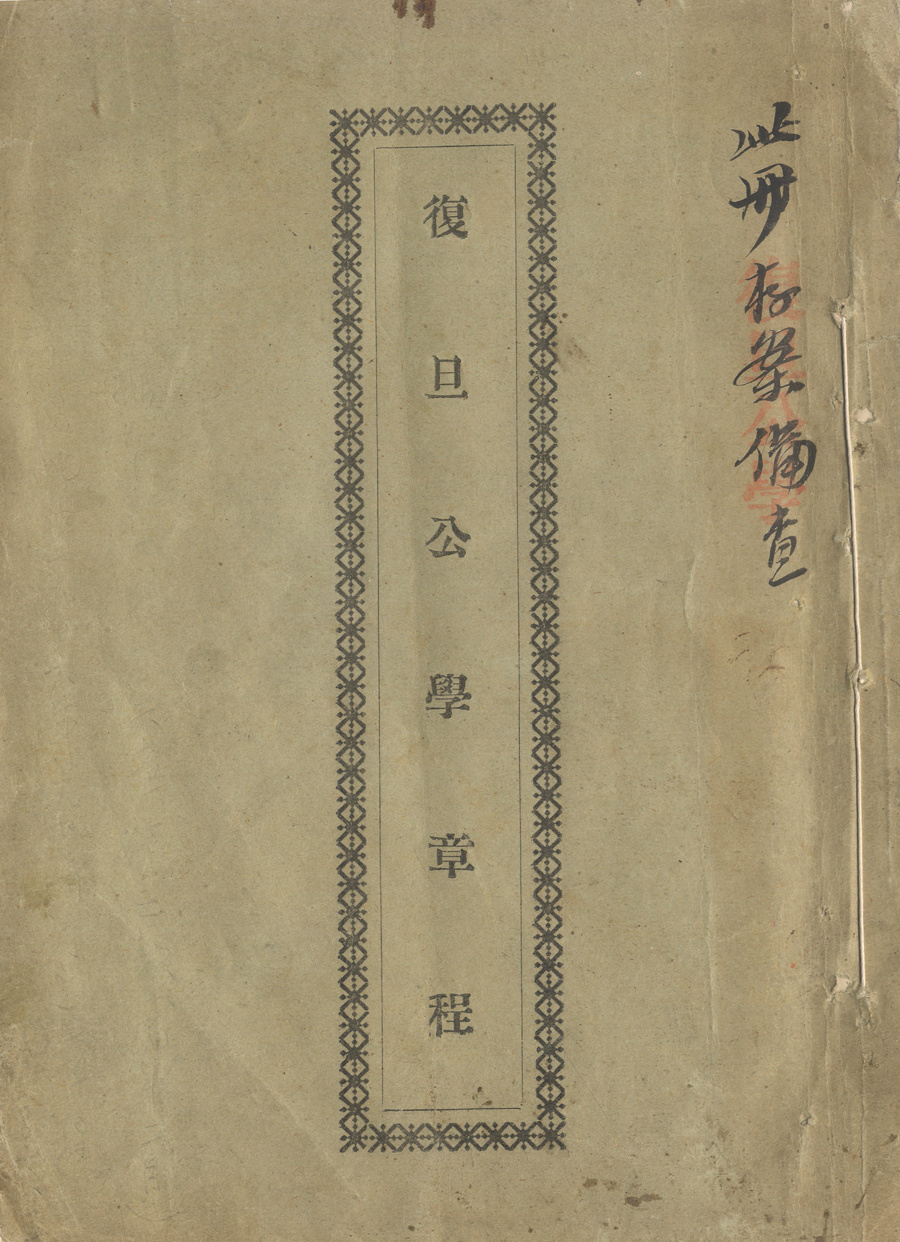 此册存案備查
復旦公學章程